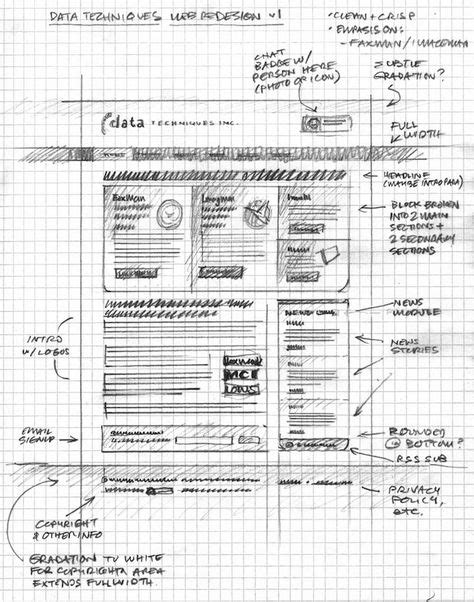 DATA TECHNIQUES WEB REDESIGN v1
• CLEAN + CRISP
• EMPHASIS ON:
- FAXMAN / IMAGEMAN
CHAT
BADGE W/
PERSON HERE
(PHOTO OR ICON)
SUBTLE
GRADATION?
data TECHNIQUES INC.
FULL
WIDTH
HEADLINE
(MAYBE INTRO PARA)
FaxMan
ImageMan
BLOCK BROKEN
INTO 2 MAIN
SECTIONS +
2 SECONDARY
SECTIONS
NEWS
MODULE
INTRO
W/ LOGOS
NEWS
STORIES
MCI
EMAIL
SIGNUP
ROUNDED
@ BOTTOM?
RSS SUB
PRIVACY
POLICY,
ETC.
COPYRIGHT
& OTHER INFO
GRADATION TO WHITE
FOR COPYRIGHT AREA
EXTENDS FULL WIDTH.